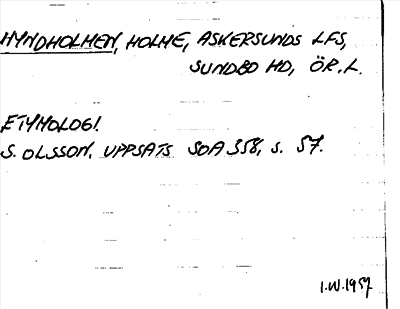 HYNDHOLMEN, HOLME, ASKERSUNDS LFS,
SUNDBO HD, ÖR.L.
ETYMOLOGI.
S. OLSSON. UPPSATS SOA 358, S. 57.
I.W.1957